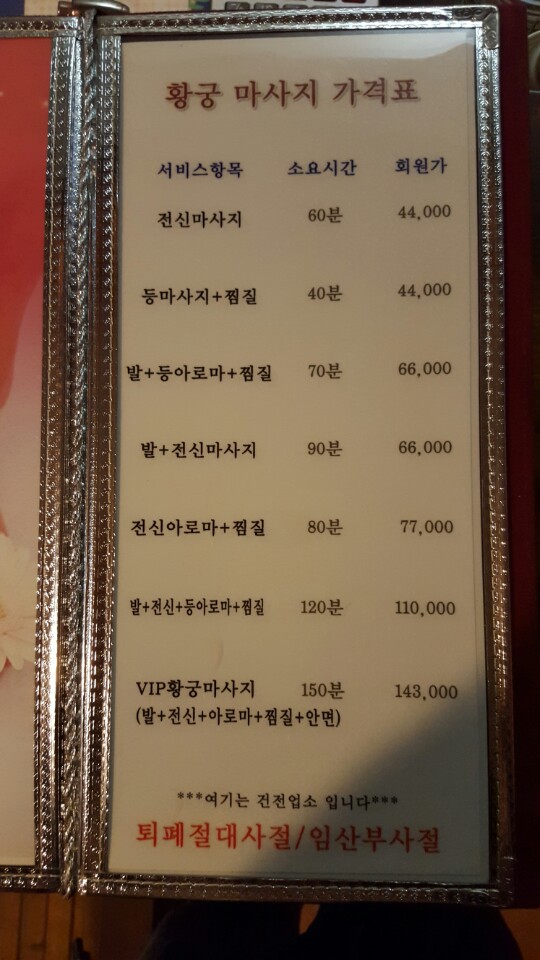 황궁 마사지 가격표
서비스항목 소요시간 회원가
전신마사지 60분 44,000
등마사지+찜질 40분 44,000
발+등아로마+찜질 70분 66,000
발+전신마사지 90분 66,000
전신아로마+찜질 80분 77,000
발+전신+등아로마+찜질 120분 110,000
VIP황궁마사지 150분 143,000
(발+전신+아로마+찜질+안면)
***여기는 건전업소 입니다***
퇴폐절대사절/임산부사절